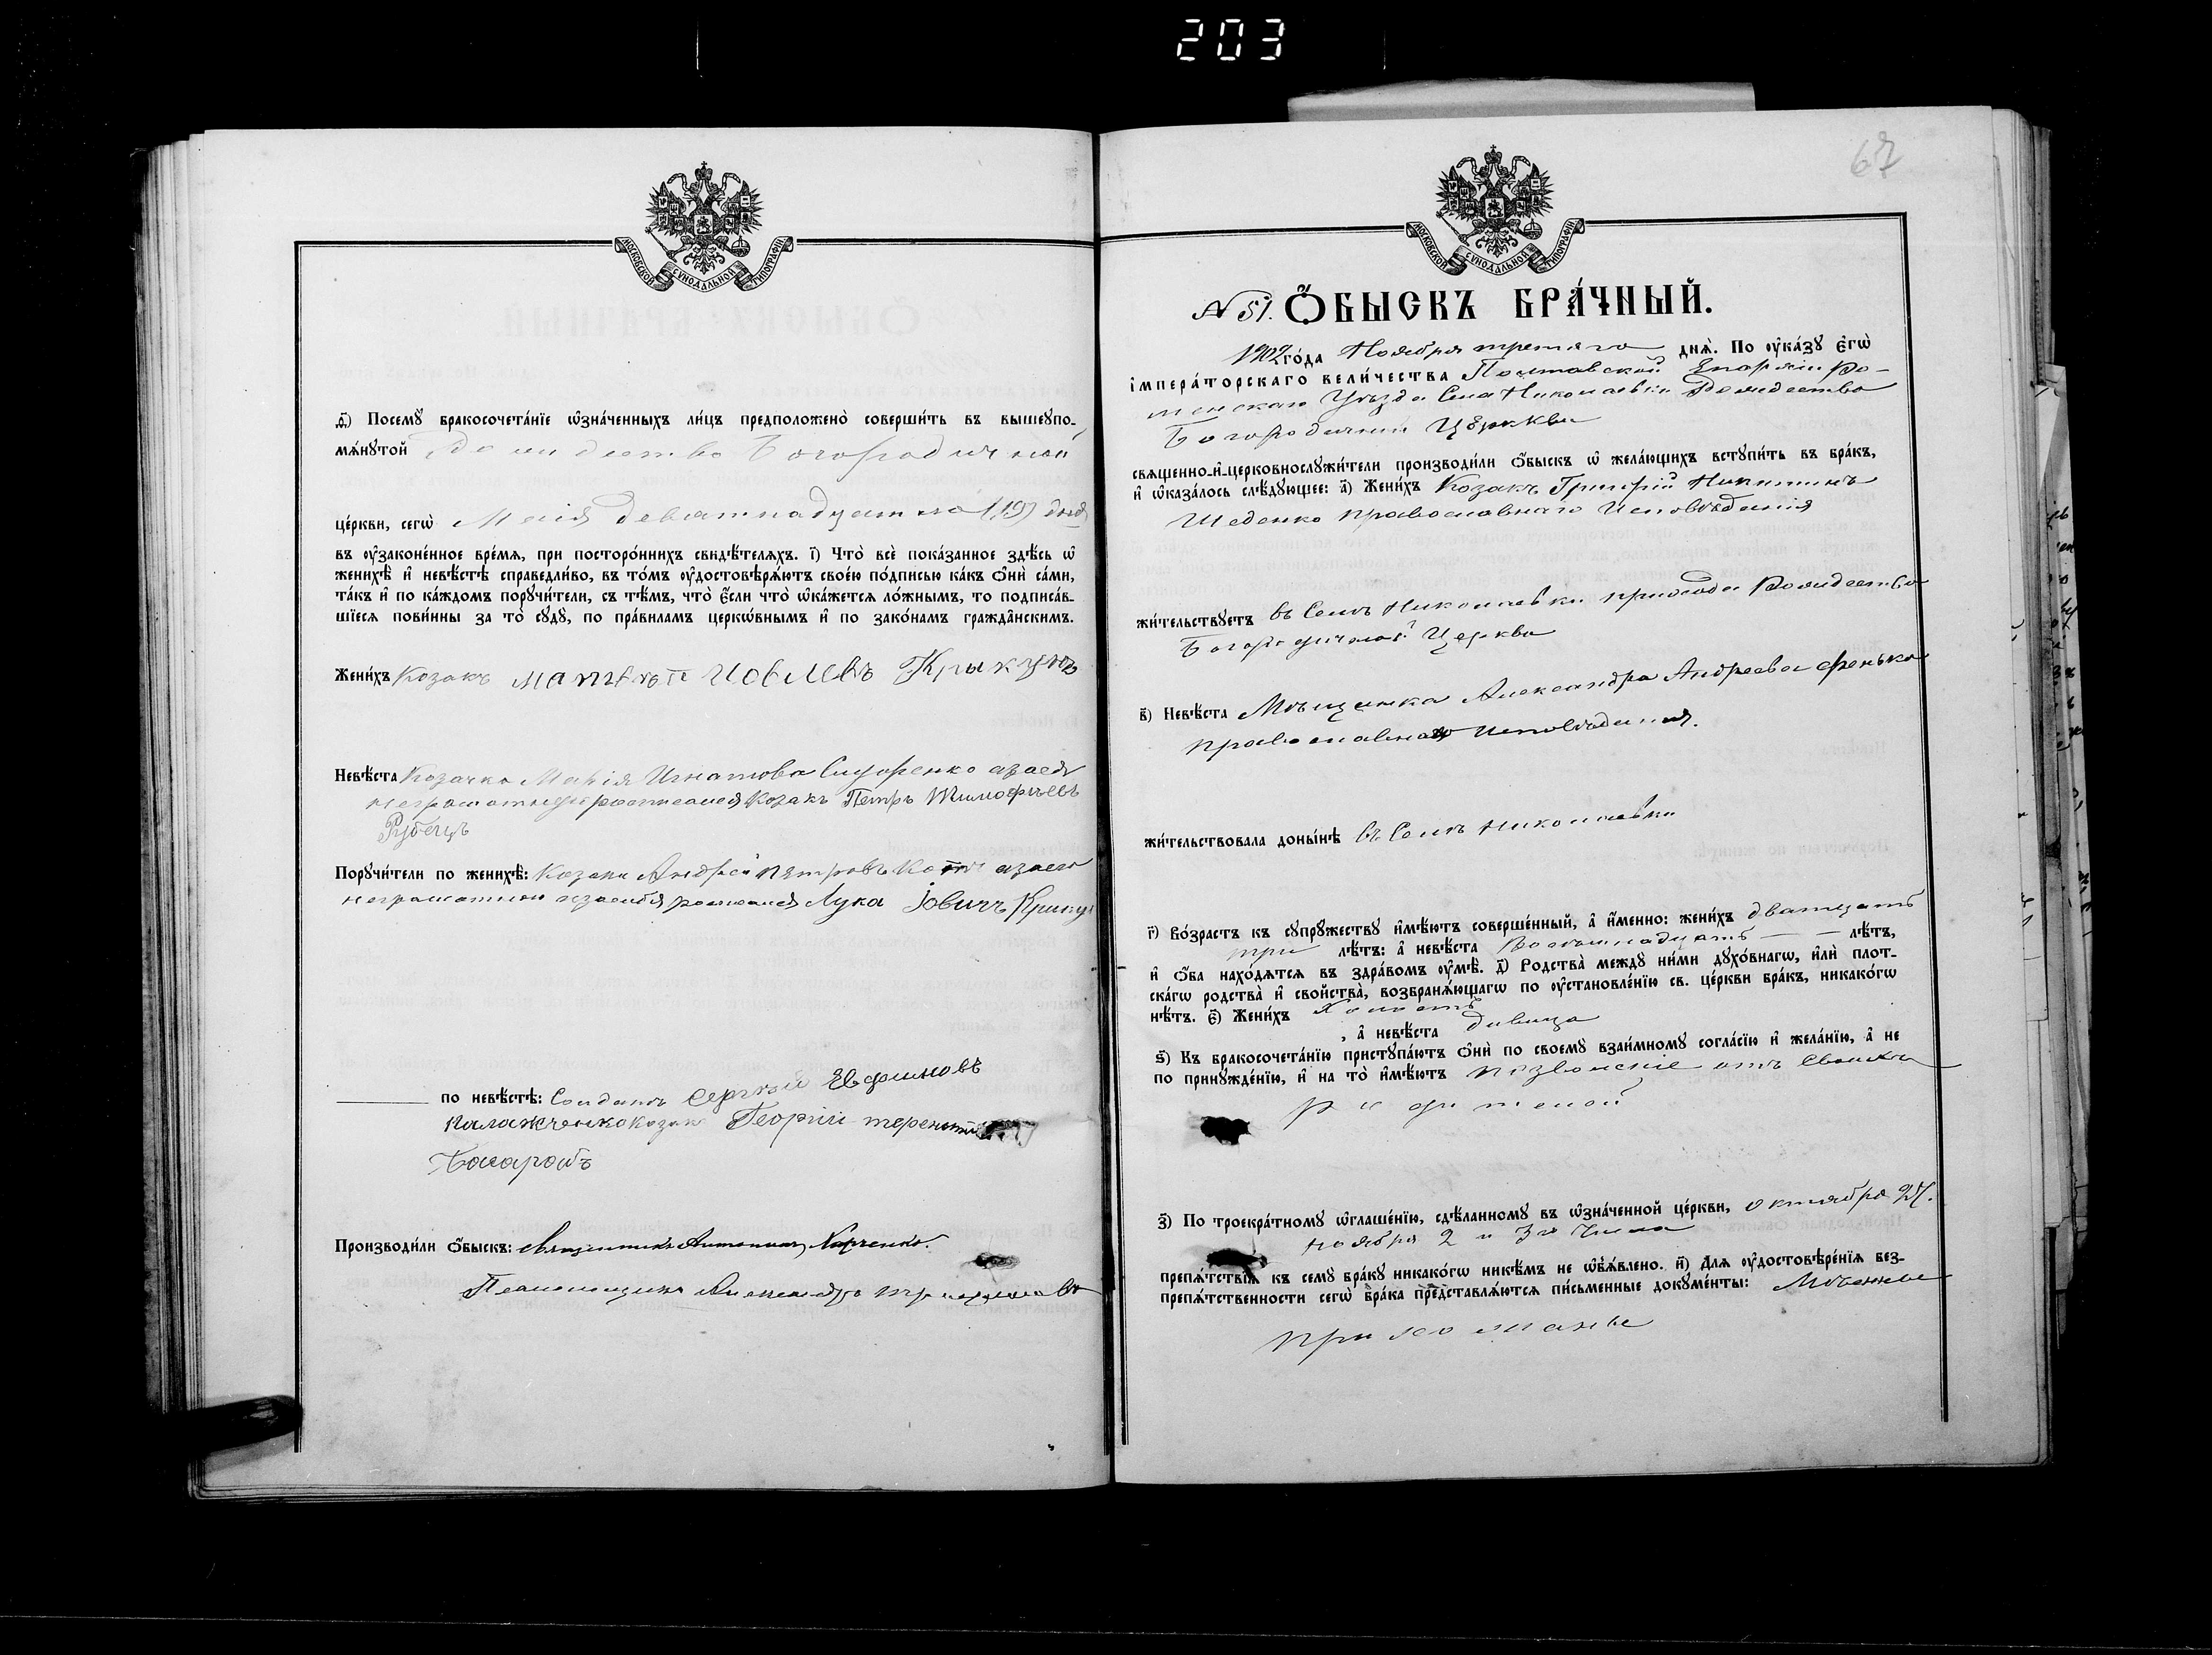 203
67
МОСКОВСКОЙ СУНОДАЛЬНОЙ ТИПОГРАФІИ
Ѳ҃) Посемꙋ̀ бракосочета́нїе ѡ҆зна́ченныхъ ли́цъ предположено̀ соверши́ть въ вышеꙋпо-
мѧ́нꙋтой Рождество Богородичной
це́ркви, сегѡ̀ Маія девятнадцатаго (19) дня
въ ᲂу҆законе́нное вре́мѧ, при посторо́ннихъ свидѣ́телѧхъ. і҃) Что̀ всѐ пока́занное здѣ́сь ѡ҆
женихѣ̀ и҆ невѣ́стѣ справедли́во, въ то́мъ ᲂу҆достовѣрѧ́ютъ свое́ю по́дписью ка́къ ѻ҆нѝ са́ми,
та́къ и҆ по ка́ждомъ порꙋчи́тели, съ тѣ́мъ, что̀ є҆́сли что̀ ѡ҆ка́жетсѧ ло́жнымъ, то подписа́в-
шїесѧ пови́нны за то̀ сꙋдꙋ̀, по пра́виламъ церко́внымъ и҆ по зако́намъ гражда́нскимъ.
Жени́хъ Козакъ Матвѣй Иовлевъ Крыкунъ
Невѣ́ста Козачка Марія Игнатова Сидоренко азаея
неграмотную росписался Козакъ Петръ Тимофѣевъ
Рубецъ
Порꙋчи́тели по женихѣ̀: Козаки Андрей Петровъ азаего
неграмотного изасебя росписался Лука Іовичъ Крикун
по невѣ́стѣ: Солдатъ Сергѣй Евфимовъ
Козак Георгій терентій
Производи́ли ѻ҆́быскъ: Священникъ Антоній Харченко.
Псаломщикъ Александръ
МОСКОВСКОЙ СУНОДАЛЬНОЙ ТИПОГРАФІИ
N 51. Ѻ҆́БЫСКЪ БРА́ЧНЫЙ.
1902 го́да Ноября третяго днѧ̀. По ᲂу҆ка́зꙋ є҆гѡ̀
і҆мпера́торскагѡ вели́чества Полтавской Епархіи Ро-
менскаго Уѣзда Села Николаевки Рождество
Богородичной Церкви
свѧщенно-и҆-церковнослꙋжи́тели производи́ли ѻ҆́быскъ ѡ҆ жела́ющихъ вступи́ть въ бра́къ,
и҆ ѡ҆каза́лось слѣ́дꙋющее: а҃) Жени́хъ Козакъ Григорій Никитинъ
Шеденко православнаго Исповѣданія
жи́тельствꙋетъ въ Селѣ Николаевки прихода Рождество
Богородичной Церкви
в҃) Невѣ́ста Мѣщанка Александра Андреева Фенько
православнаго Исповѣданія.
жи́тельствовала доны́нѣ въ Селѣ Николаевки
г҃) Во́зрастъ къ сꙋпрꙋ́жествꙋ и҆мѣ́ютъ соверше́нный, а҆ и҆́менно: жени́хъ двацать
три лѣ́тъ: а҆ невѣ́ста Восемнадцать — — лѣ́тъ,
и҆ ѻ҆́ба нахо́дѧтсѧ въ здра́вомъ ᲂу҆мѣ̀. д҃) Родства̀ междꙋ ни́ми дꙋхо́внагѡ, и҆лѝ плот-
ска́гѡ родства̀ и҆ свойства̀, возбранѧ́ющагѡ по ᲂу҆становле́нїю св. це́ркви бра́къ, никако́гѡ
нѣ́тъ. є҃) Жени́хъ Холостъ
, а҆ невѣ́ста дивица
ѕ҃) Къ бракосочета́нїю пристꙋпа́ютъ ѻ҆нѝ по своемꙋ̀ взаи́мномꙋ согла́сїю и҆ жела́нїю, а҆ не
по принꙋжде́нїю, и҆ на то̀ и҆мѣ́ютъ позволеніе отъ Своихъ
родителей
з҃) По троекра́тномꙋ ѡ҆глаше́нїю, сдѣ́ланномꙋ въ ѡ҆зна́ченной це́ркви, октября 27.
ноября 2 и 3го Числа
препѧ́тствїѧ къ семꙋ̀ бра́кꙋ никако́гѡ никѣ́мъ не ѡ҆б̾ѧ́влено. и҃) Длѧ ᲂу҆достовѣре́нїѧ без-
препѧ́тственности сегѡ̀ бра́ка представлѧ́ютсѧ пи́сьменные докꙋме́нты: